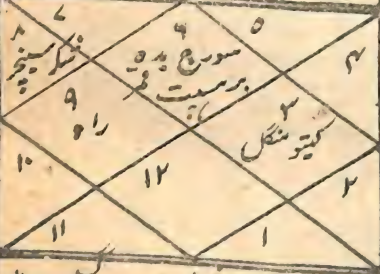 ۷ ۶ ۵
۸ شکر سنیچر سورج بدھ ۴
برسپت قمر
۹ ۳
راہ کیتو منگل
۱۰ ۱۲ ۲
۱۱ ۱